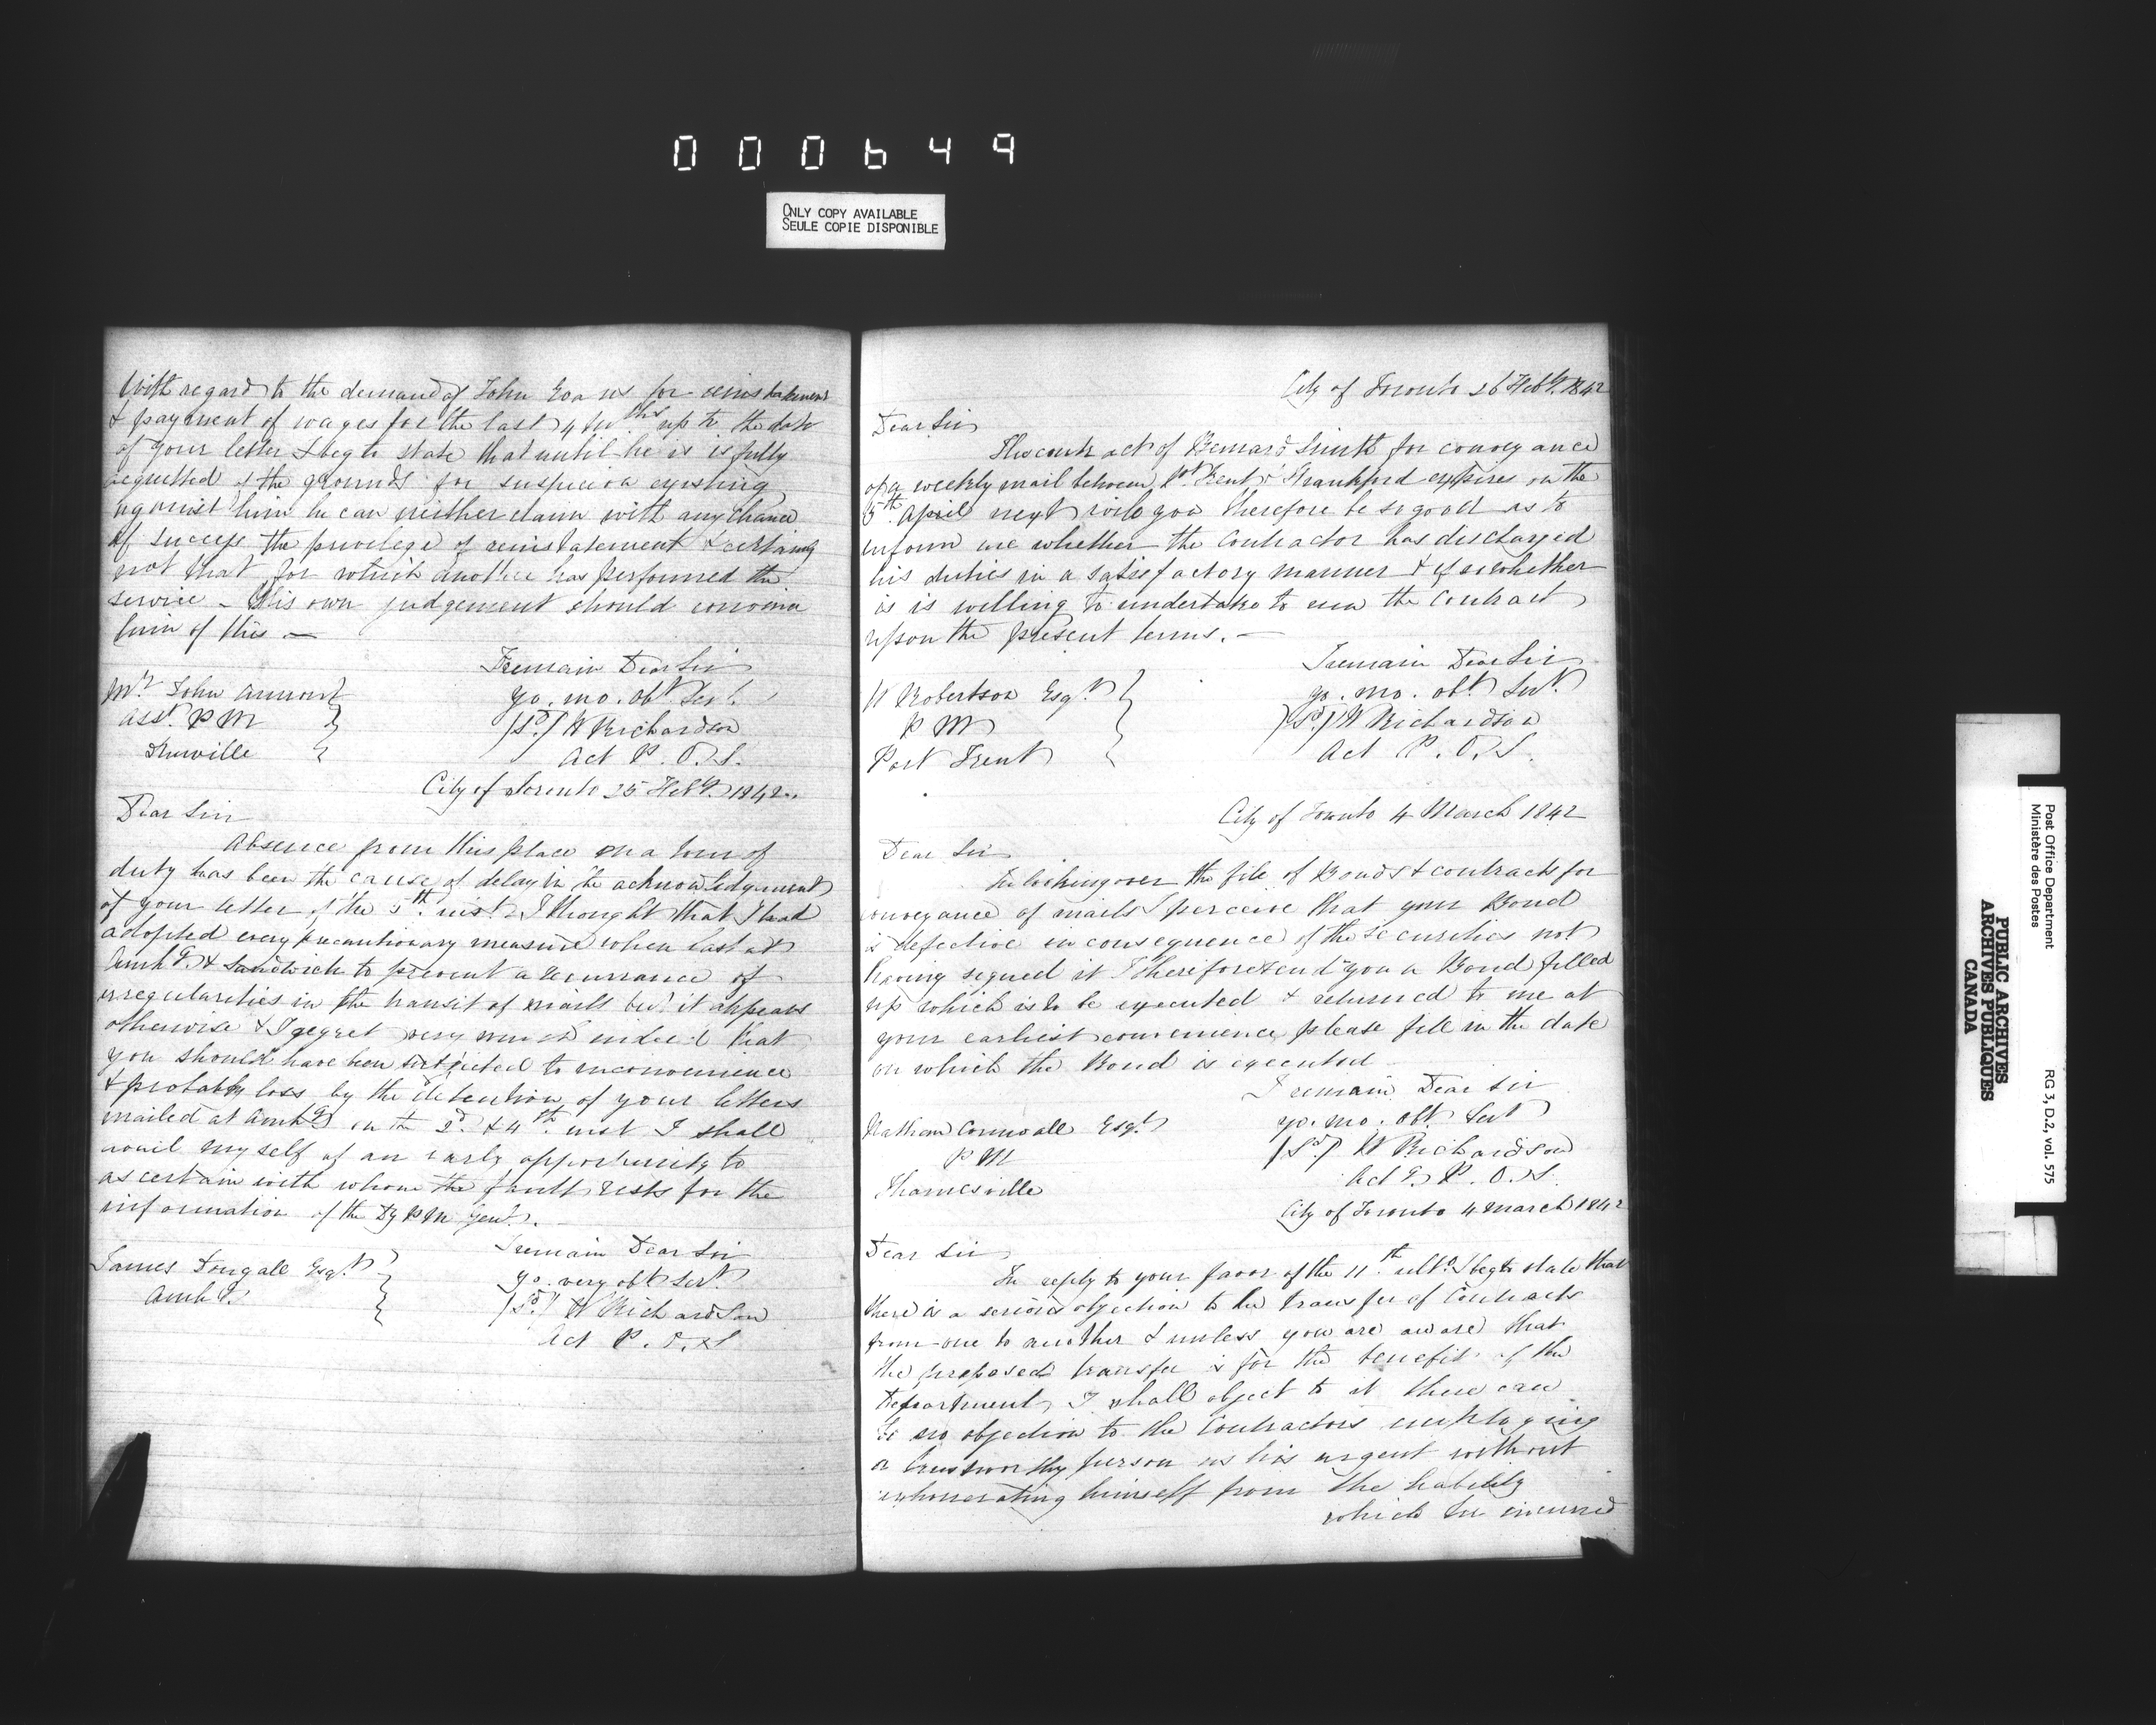 000649
ONLY COPY AVAILABLE
SEULE COPIE DISPONIBLE
With regard to the demand of John Evans for reinstatement
& payment of wages for the last 4 mths up to the date
of your letter I beg to state that until he is is fully
acquitted of the grounds for suspicion existing
against him he can neither claim with any chance
of success the privelege of reinstatement & certainly
not that for which another has performed the
service – His own judgement should convince
him of this —
I remain Dear Sir
Mr John
yo. mo. obt Servt
Asst P M
(Sd) W Richardson
Act P. O. S.
City of Toronto 25 Feby 1842
Dear Sir
Absence from this place on a tour of
duty has been the cause of delay in the acknowledgment
of your letter of the 5th inst. I thought that I had
adopted every precautionary measure when last at
Amhg & Sandwich to prevent a recurrance of
irregularities in the transit of mails but it appears
otherwise & I regret very much indeed that
you should have been subjected to inconvenience
& probably loss by the detention of your letters
mailed at Amhg on the 2d & 4th inst I shall
avail myself of an early opportunity to
ascertain with whom the fault rests for the
information of the Dy P M Genl. –
I remain Dear Sir
James Dougall Esqr
yo. very obt Servt
Amhg
(Sd) W Richardson
Act P. O. S
City of Toronto 26 Feby 1842
Dear Sir
The contract of Bernard Smith for conveyance
of a weekly mail between Pt Trent & Frankford expires on the
5th April next will you therefore be so good as to
inform me whether the Contractor has discharged
his duties in a satisfactory manner & if so whether
is is willing to undertake to run the Contract
upon the present terms. —
I remain Dear Sir
W Robertson Esqr
yo. mo. obt Servt
P M
(Sd) W Richardson
Port Trent
Act P. O. S.
City of Toronto 4 March 1842
Dear Sir
In looking over the file of Bonds & contracts for
conveyance of mails I perceive that your Bond
is defective in consequence of the securities not
having signed it I therefore send you a Bond filled
up which is to be executed & returned to me at
your earliest convenience please fill in the date
on which the Bond is executed
I remain Dear Sir
Nathan Cornwall Esqr
yo. mo. obt Servt
P M
(Sd) W Richardson
Thamesville
Actg P. O. S.
City of Toronto 4 March 1842
Dear Sir
In reply to your favor of the 11th ulto I beg to state that
there is a serious objection to the transfer of Contracts
from one to another & unless you are aware that
the proposed transfer is for the benefit of the
Department, I shall object to it there can
be no objection to the Contractors employing
a trustworthy person as his argent without
exhonerating himself from the liability
which he incurred
PUBLIC ARCHIVES
ARCHIVES PUBLIQUES
CANADA
Post Office Department
Ministère des Postes
RG 3, D.2, vol. 575